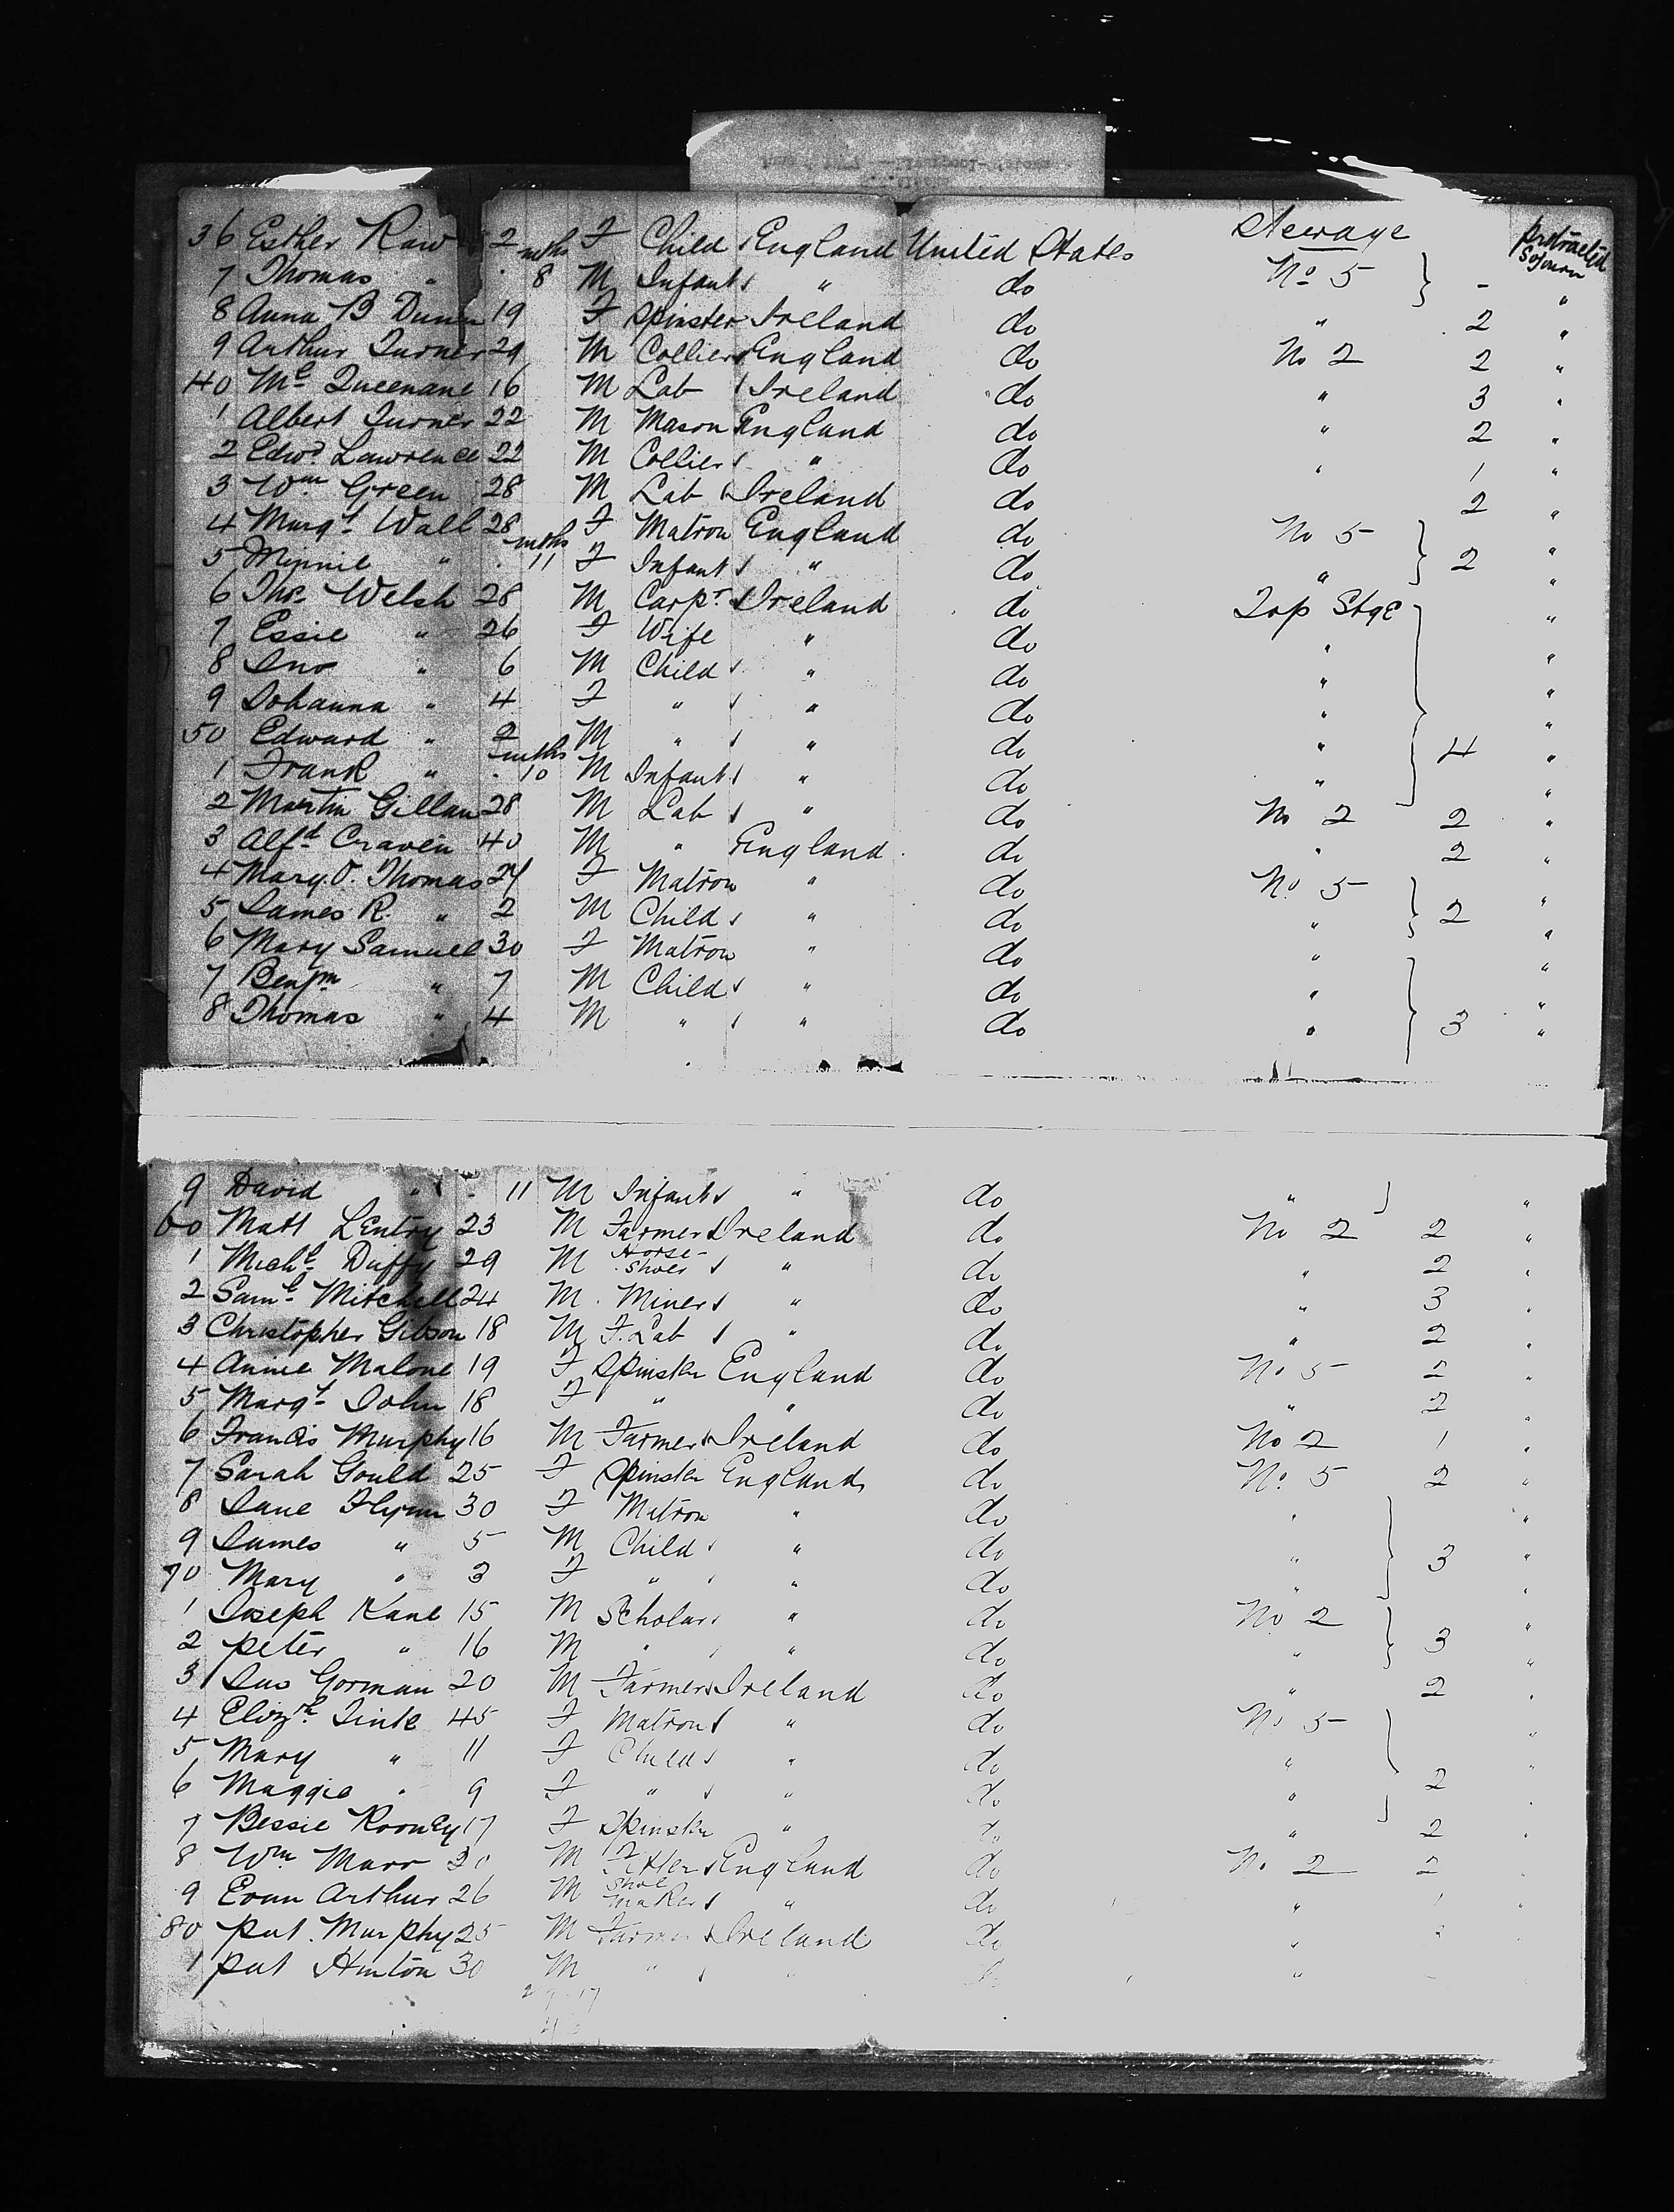 36 Esther Raw 2 F Child England United States Steerage protracted Sojourn
7 Thomas " mths 8 M Infant " do No 5 - "
8 Anna B Dunn 19 F Spinster Ireland do " 2 "
9 Arthur Turner 29 M Collier England do No 2 2 "
40 Mc Queenane 16 M Lab Ireland do " 3 "
1 Albert Turner 22 M Mason England do " 2 "
2 Edwd Lawrence 22 M Collier " do " 1 "
3 Wm Green 28 M Lab Ireland do 2 "
4 Margt Wall 28 F Matron England do No 5 "
5 Minnie " mths 11 F Infant " do " 2 "
6 Thos Welsh 28 M Carpr Ireland do Top Stge "
7 Essie " 26 F Wife " do " "
8 Jno " 6 M Child " do " "
9 Johanna " 4 F " " do " "
50 Edward " 2 M " " do " 4 "
1 Frank " mths 10 M Infant " do " "
2 Martin Gillan 28 M Lab " do No 2 2 "
3 Alfd Craven 40 M " England do " 2 "
4 Mary O. Thomas 24 F Matron " do No 5 "
5 James R. " 2 M Child " do " 2 "
6 Mary Samuel 30 F Matron " do " "
7 Benjm " 7 M Child " do " "
8 Thomas " 4 M " " do " 3 "
9 David " 11 M Infant " do " "
60 Matt LEntry 23 M Farmer Ireland do No 2 2 "
1 Michl Duffy 29 M Horse-Shoer " do " 2 "
2 Saml Mitchell 24 M Miner " do " 3 "
3 Christopher Gibson 18 M F. Lab " do " 2 "
4 Annie Malone 19 F Spinster England do No 5 2 "
5 Margt John 18 F " " do " 2 "
6 Francis Murphy 16 M Farmer Ireland do No 2 1 "
7 Sarah Gould 25 F Spinster England do No 5 2 "
8 Jane Flynn 30 F Matron " do " "
9 James " 5 M Child " do " 3 "
70 Mary " 3 F " " do " "
1 Joseph Kane 15 M Scholar " do No 2 "
2 Peter " 16 M " " do " 3 "
3 Jas Gorman 20 M Farmer Ireland do " 2 "
4 Elizth Tinte 45 F Matron " do No 5 "
5 Mary " 11 F Child " do " "
6 Maggie " 9 F " " do " 2 "
7 Bessie Rooney 17 F Spinster " do " 2 "
8 Wm Marr 20 M Fitter England do No 2 2
9 Evan Arthur 26 M Shoe maker " do " 1 "
80 Pat. Murphy 25 M Farmer Ireland do "
1 Pat Hinton 30 M " " "